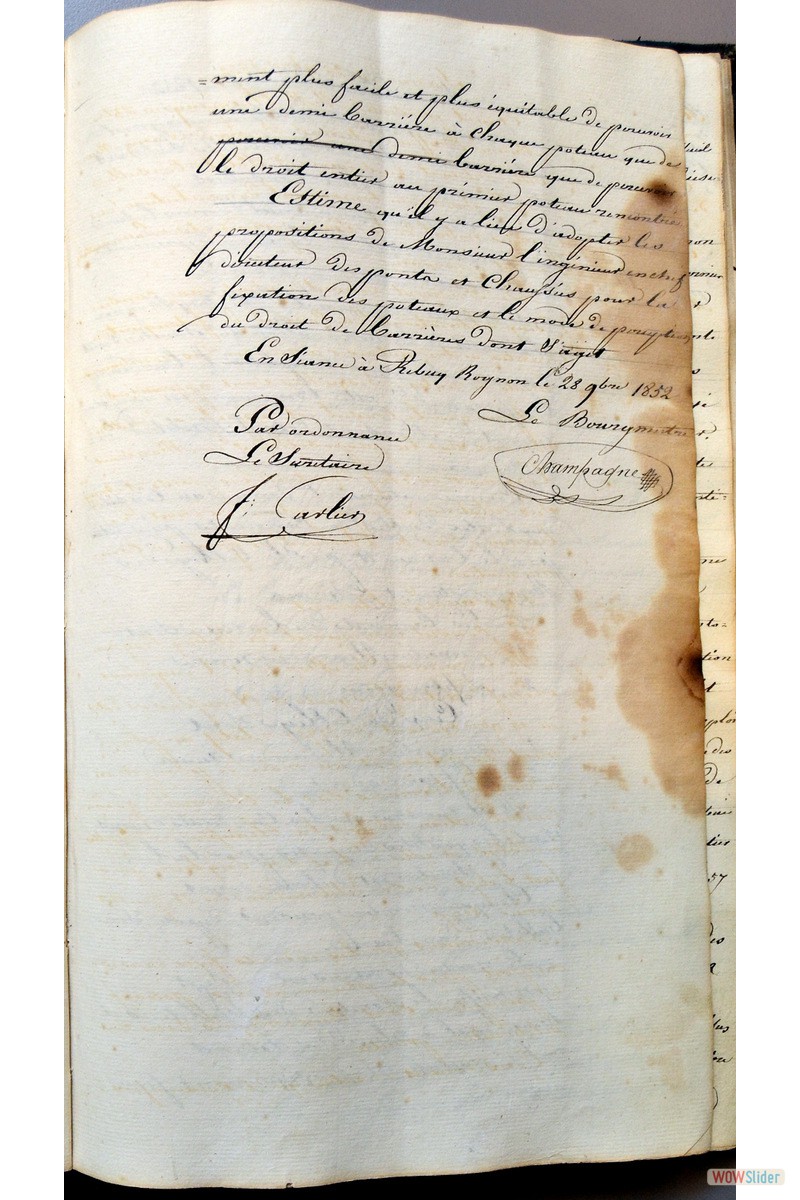 =ment plus facile et plus équitable de pouvoir
une demi barrière à chaque poteau que de
pouvoir une demi barrière que de pouvoir
le droit entier au prémier poteau rencontré
Estime qu'il y a lieu d'adopter les
propositions de Monsieur l'ingénieur en chef
directeur des ponts et Chaussées pour la
fixation des poteaux et le mode de
du droit de barrières dont S'agit
En Séance à Rebecq Rognon le 28 9bre 1852
Par ordonnance
Le Bourgmestre.
Le Secrétaire
Champagne
J. Carlier
tion
de
57
WOWSlider